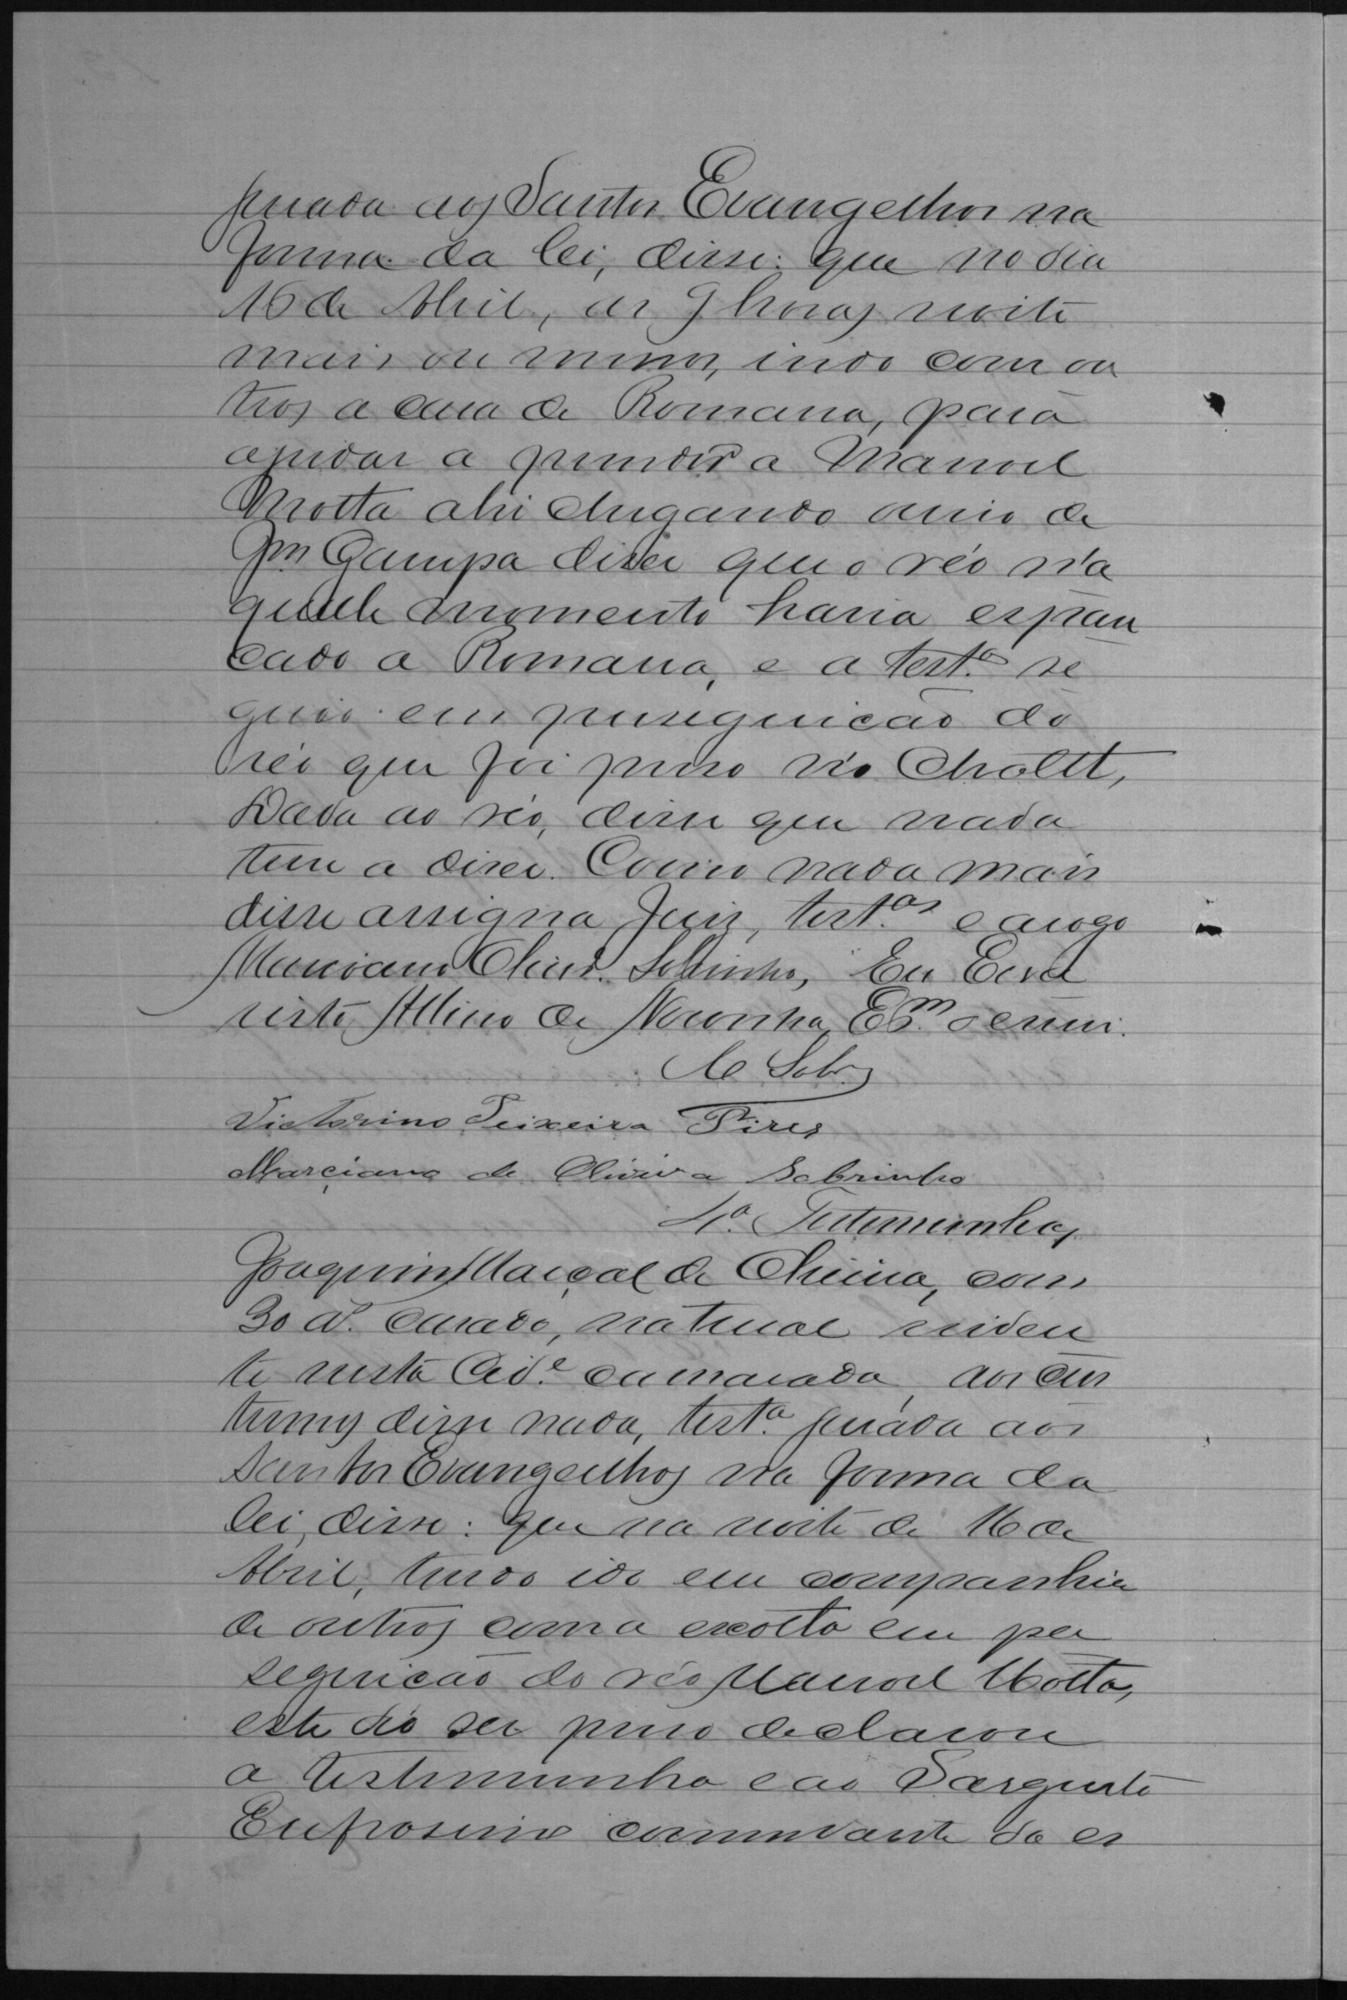 jurada aos Santos Evangelhos na
forma da lei, disse: que no dia
16 de Abril, as 9 horas noite
mais ou menos, indo com ou
tros a casa de Romana, para
ajudar a prender a Manoel
Motta ahi chegando ouvio de
Jm Gampa diser que o réo n'a
quelle momento havia espan
cado a Romana, e a test.a se
guio em perseguicão do
réo que foi preso no Chalet,
Dada ao réo, disse que nada
tem a diser. Como nada mais
disse assigna Juis, test.as e arogo
Marciano Olivr. Sobrinho, Eu Eva
risto Albino de Noronha, Es.m o escrevi.
Victorino Teixeira Pires
Marciano de Oliveira Sobrinho
4.a Testemunha
Joaquim Marçal de Oliveira, com
30 a.s casado, natural residen
te nesta Cid.e camarada, aos cus
tumes disse nada, test.a jurada aos
Santos Evangelhos na forma da
lei, disse: que na noite de 16 de
Abril, tendo ido em companhia
de outros com a escolta em per
seguicão do réo Manoel Motta,
este ao ser preso declarou
a testemunha e ao Sargento
Eufrosino commandante da es